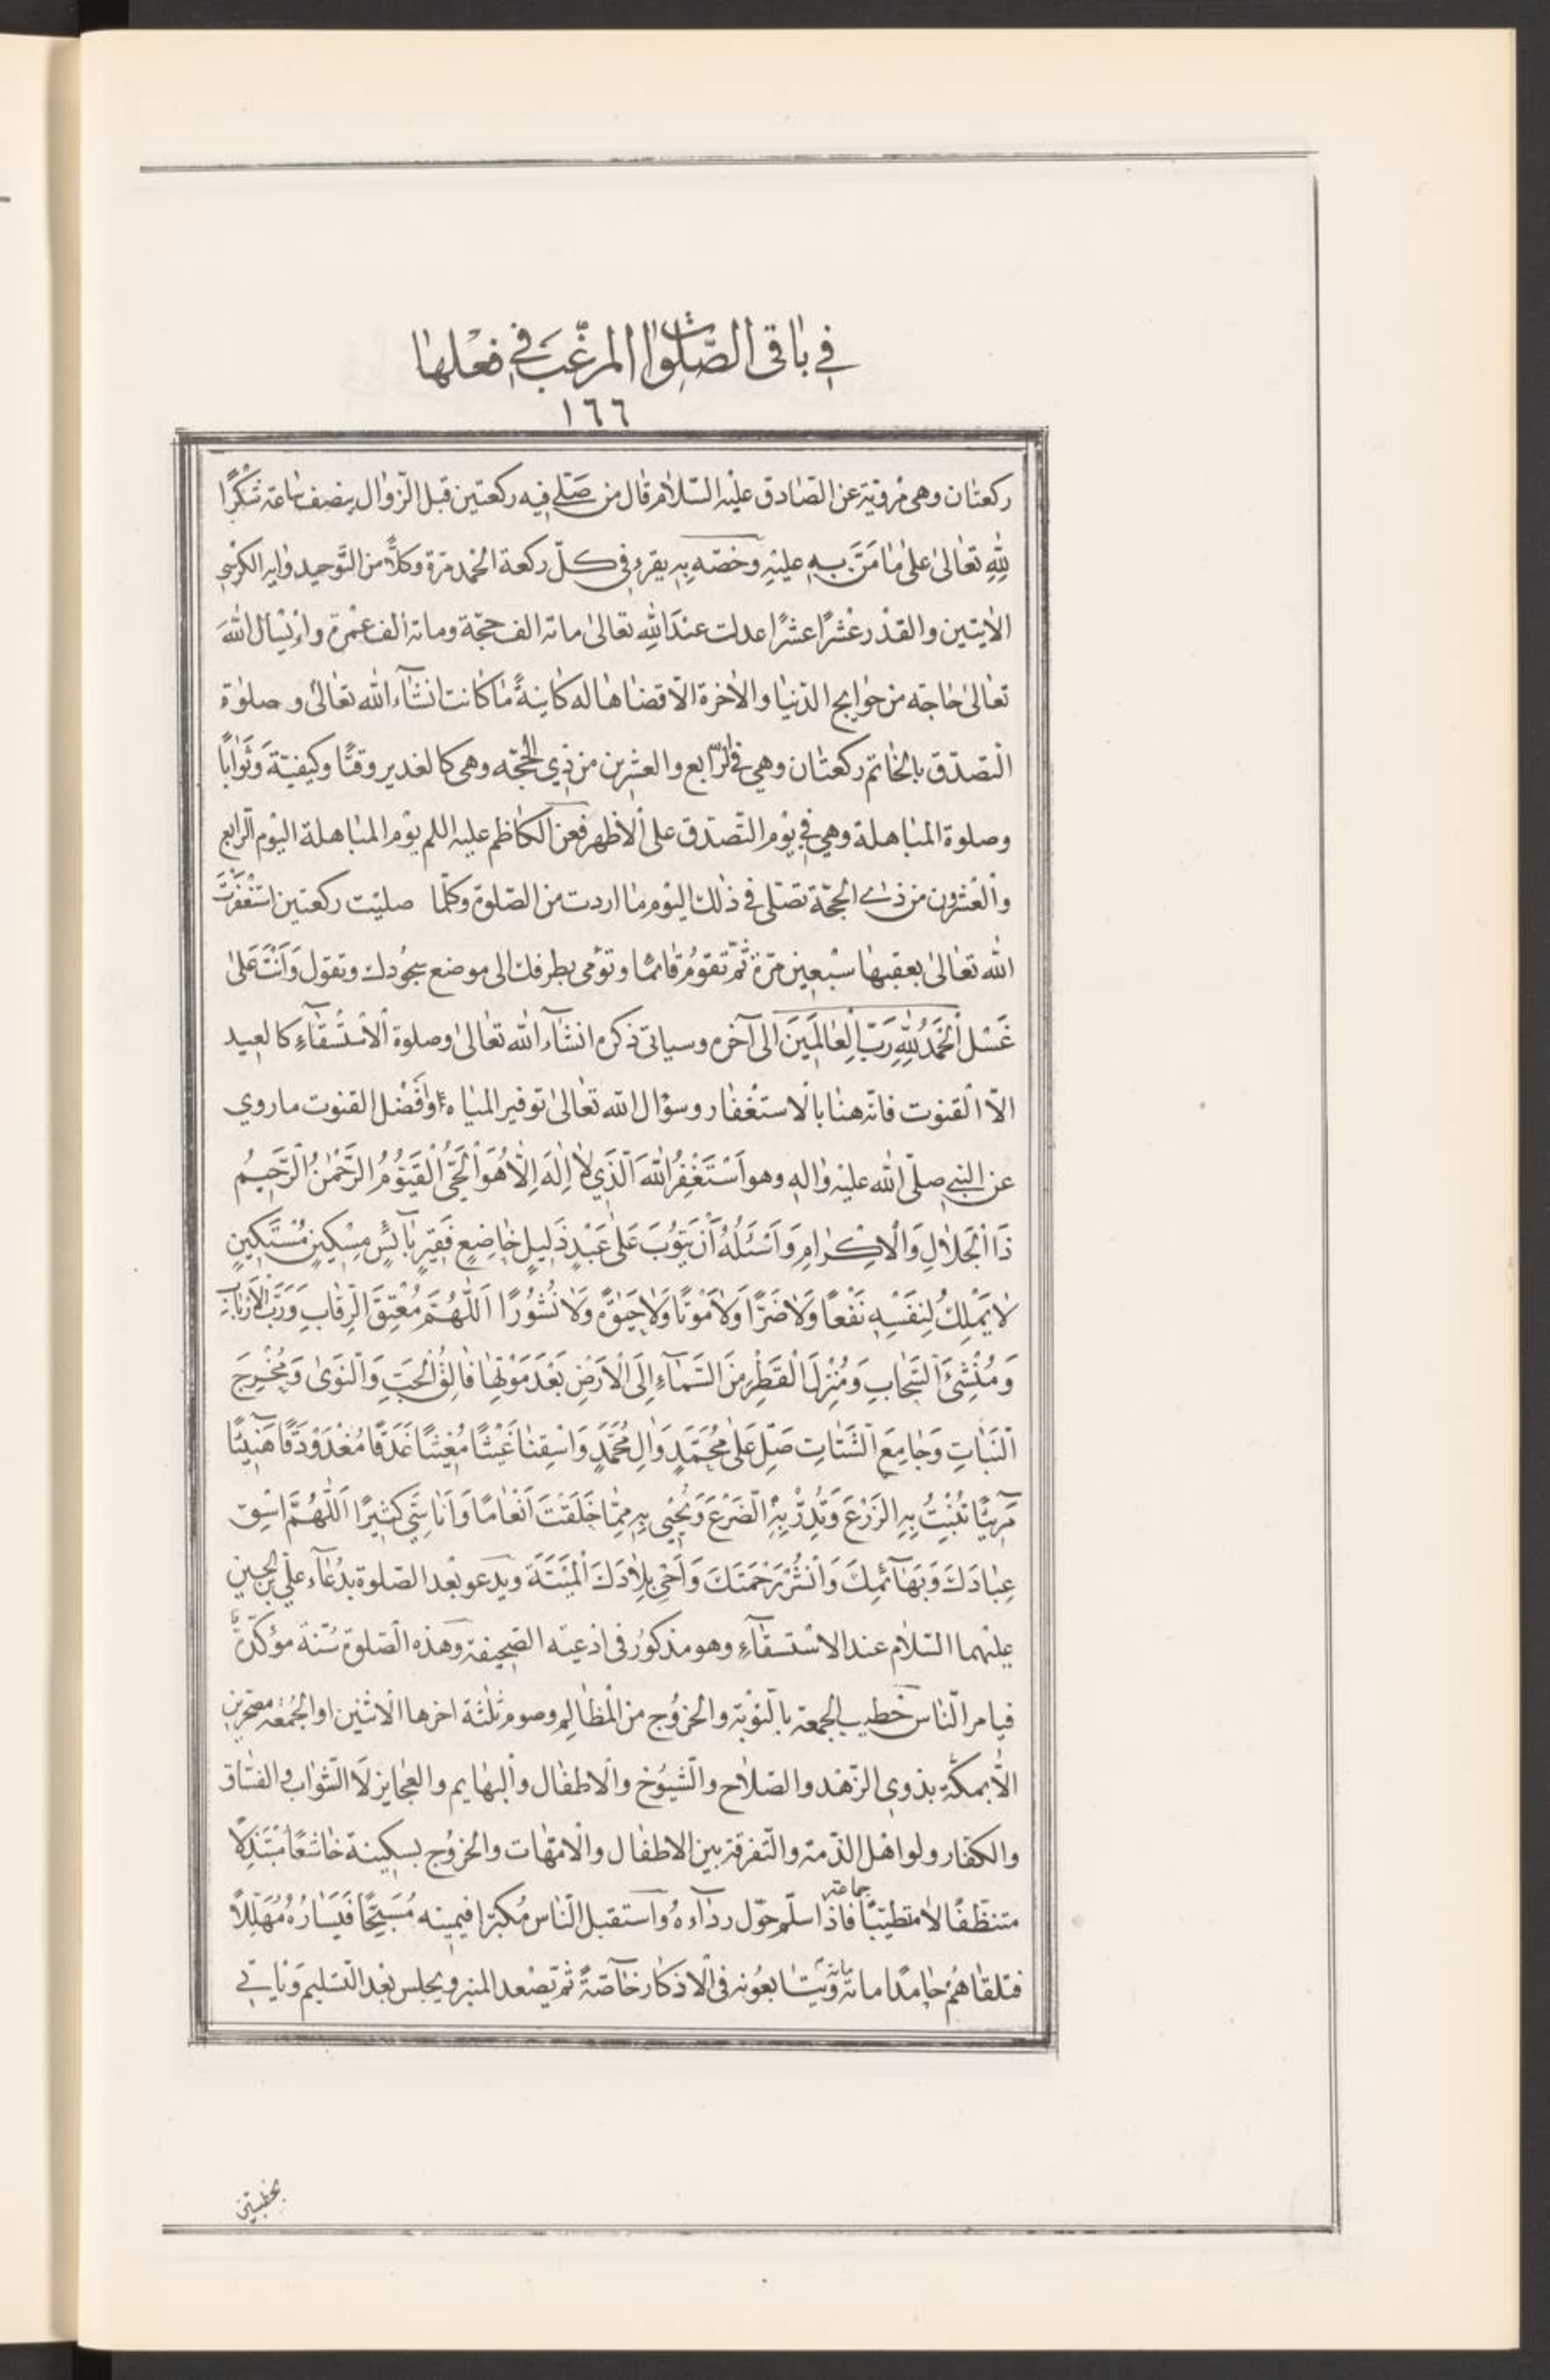 في باقى الصّلوات المرغّب في فعلها
١٦٦
ركعتان وهى مرويّة عن الصّادق عليه السّلام قال من صَلّى فيه ركعتين قبل الزّوال بنصف ساعة شكرًا
لِلّهِ تعالىٰ علىٰ ما مَنّ بهِ عليهِ وخصّه بِهِ يقرء فى كلّ ركعة الحمد مرّة وكلاًّ من التّوحيد واية الكرسى
الايتين والقدر عشرًا عشرًا عدلت عندَ اللهِ تعالىٰ مائة الف حجّة ومائة الف عمرة ولم يسأل اللهَ
تعالىٰ حاجة من حوايج الدّنيا والاخرة الّا قضاها له كاينةً ما كانت انشآء الله تعالىٰ وصلوة
التصدّق بالخاتم ركعتان وهي في الرّابع والعشرين من ذي الحجّه وهى كالغدير وقتًا وكيفيّةً وَثوابًا
وصلوة المباهلة وهي في يوم التّصدّق على الأظهر فعن الكاظم عليه اللم يوم المباهلة اليوم الرّابع
والعشرون من ذي الحجّة تصلّى في ذلك اليوم ما اردت من الصّلوة وكلّما صليت ركعتين استغفرت
الله تعالىٰ بعقبها سبعين مرّة ثمّ تقومُ قائمًا وتؤمى بطرفك الى موضع سجُودك وتقول وَأنتَ عَلىٰ
غسْل اَلْحَمْدُ لِلّهِ رَبِّ الْعالَمينَ الى آخره وسياتى ذكره انشآء الله تعالىٰ وصلوة الاستسقآءِ كالعيد
الّا القنوت فانّه هنا بالاستغفار وسؤال الله تعالىٰ توفير المياه وافضل القنوت ما روي
عن النبي صلّى الله عليه واله وهو اَسْتَغْفِرُ اللهَ الَّذي لا اِلهَ اِلّا هُوَ الْحَىُّ الْقَيُّومُ الرَّحْمنُ الرَّحيمُ
ذَا الْجَلالِ وَالْاِكْرامِ وَاَسْئَلُهُ اَنْ يَتُوبَ عَلىٰ عَبْدٍ ذَليلٍ خاضِعٍ فَقيرٍ بآئِسٍ مِسْكينٍ مُسْتَكينٍ
لا يَمْلِكُ لِنَفْسِهِ نَفْعًا وَلا ضَرًّا وَلا مَوْتًا وَلا حَيوةً وَلا نُشُورًا اَللّهُمَّ مُعْتِقَ الرِّقابِ وَرَبَّ الْاَرْبابِ
وَمُنْشِئَ السَّحابِ وَمُنْزِلَ الْقَطْرِ مِنَ السَّمآءِ اِلَى الْاَرْضِ بَعْدَ مَوْتِها فالِقَ الْحَبِّ وَالنَّوىٰ وَمُخْرِجَ
النَّباتِ وَجامِعَ الشَّتاتِ صَلِّ عَلىٰ مُحَمَّدٍ وَالِ مُحَمَّدٍ وَاسْقِنا غَيْثًا مُغيثًا غَدَقًا مُغْدَوْدَقًا هَنيئًا
مَريئًا تُنْبِتُ بِهِ الزَّرْعَ وَتُدِرُّ بِهِ الضَّرْعَ وَتُحْيى بِهِ مِمّا خَلَقْتَ اَنْعامًا وَاَناسِيَّ كَثيرًا اَللّهُمَّ اسْقِ
عِبادَكَ وَبَهآئِمَكَ وَانْشُرْ رَحْمَتَكَ وَاَحْىِ بِلادَكَ الْمَيْتَةَ ويدعو بعد الصّلوة بدُعآء علىّ بن الحسين
عليهما السّلام عند الاستسقآءِ وهو مذكورٌ فى ادعية الصّحيفة وهذه الصّلوة سُنّة مؤكّدة
فيامر النّاس خطيب الجمعة بالتّوبة والخروج من المظالم وصوم ثلثة اخرها الاثنين او الجُمُعة مصحرين
الّا بمكّة بذوى الزّهد والصّلاح والشّيوخ والاطفال والبهايم والعجايز لا الشّواب والفسّاق
والكفّار ولو اهل الذّمة والتّفرقة بين الاطفال والامّهات والخروج بسكينة خاشعًا مبتذلًا
متنظّفًا لا متطيّبًا جماعة فاذا سلّم حوّل ردآءه واستقبل النّاس مُكبّرا فيمينه مُسَبِّحًا فَيَسارُهُ مُهَلِّلًا
فتلقاهُمْ حامدًا مائة مائة ويتابعونه فى الاذكار خآصّةً ثمّ يصعد المنبر ويجلس بعد التّسليم وياتي
بخطبتين